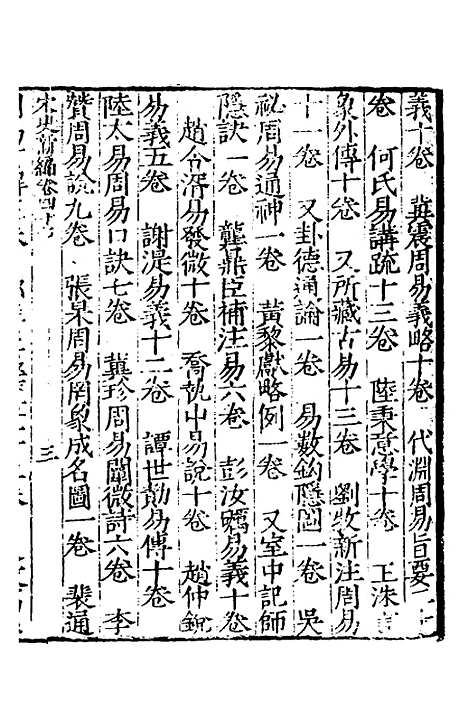 義十卷　冀震周易義略十卷　代淵周易旨要二十
卷　何氏易講疏十三卷　陸秉意學十卷　王洙言
象外傳十卷　又所藏古易十三卷　劉牧新注周易
十一卷　又卦德通論一卷　易數鈎隱圖一卷　吳
祕周易通神一卷　黃黎獻略例一卷　又室中記師
隱訣一卷　龔鼎臣補注易六卷　彭汝礪易義十卷
趙令湑易發微十卷　喬執中易說十卷　趙仲銳
易義五卷　謝湜易義十二卷　譚世勣易傳十卷
陸太易周易口訣七卷　冀珍周易闡微詩六卷　李
贊周易說九卷　張杲周易罔象成名圖一卷　裴通
宋史新編卷四十七　三